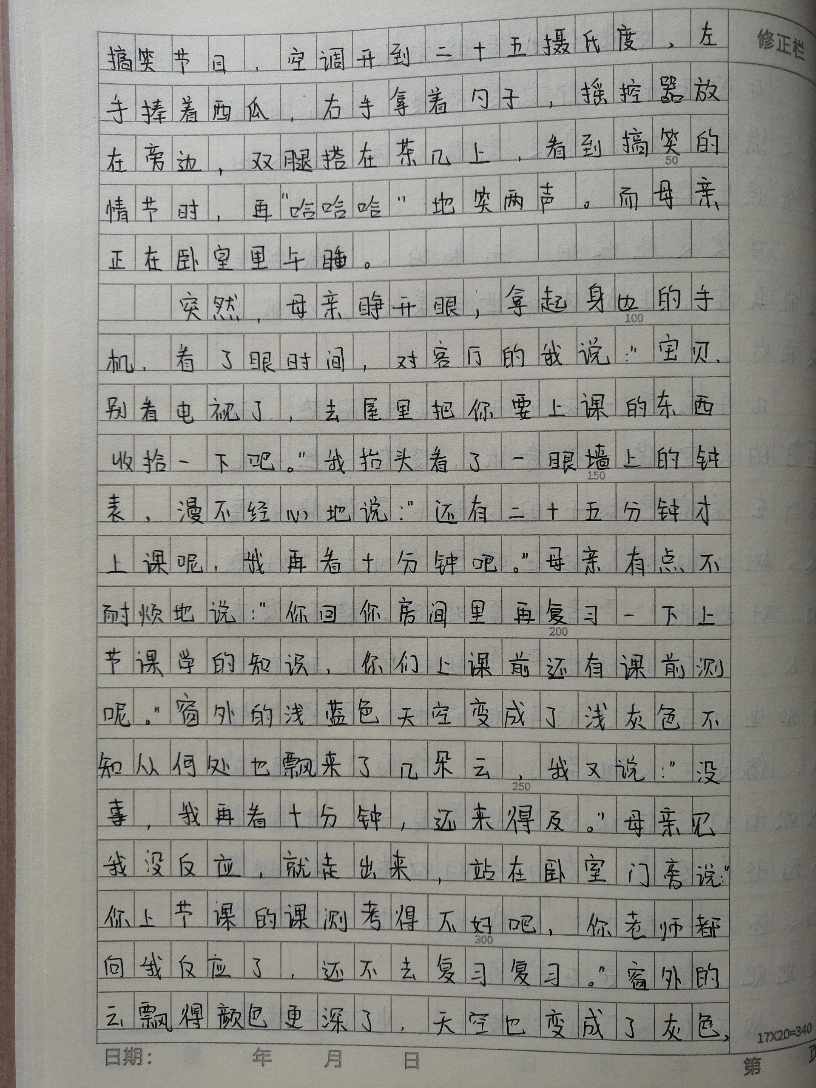 搞笑节目，空调开到二十五摄氏度，左
手捧着西瓜，右手拿着勺子，摇控器放
在旁边，双腿搭在茶几上，看到搞笑的
50
情节时，再"哈哈哈"地笑两声。而母亲
正在卧室里午睡。
突然，母亲睁开眼，拿起身边的手
100
机，看了眼时间，对客厅的我说："宝贝，
别看电视了，去屋里把你要上课的东西
收拾一下吧。"我抬头看了一眼墙上的钟
150
表，漫不经心地说："还有二十五分钟才
上课呢，我再看十分钟吧。"母亲有点不
耐烦地说："你回你房间里再复习一下上
200
节课学的知识，你们上课前还有课前测
呢。"窗外的浅蓝色天空变成了浅灰色不
知从何处也飘来了几朵云，我又说："没
250
事，我再看十分钟，还来得及。"母亲见
我没反应，就走出来，站在卧室门旁说："
你上节课的课测考得不好吧，你老师都
300
向我反应了，还不去复习复习。"窗外的
云飘得颜色更深了，天空也变成了灰色，
修正栏
17X20=340
日期： 年 月 日
第